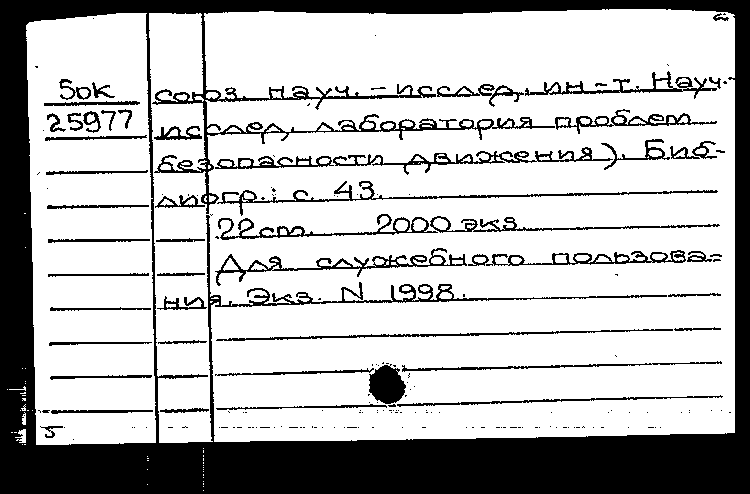 5ок союз. науч.-исслед, ин-т. Науч.-
25977 исслед, лаборатория проблем
безопасности движения). Биб-
лиогр.: с. 43.
22cm. 2000 экз.
Для служебного пользова=
ния. Экз. N 1998.
5